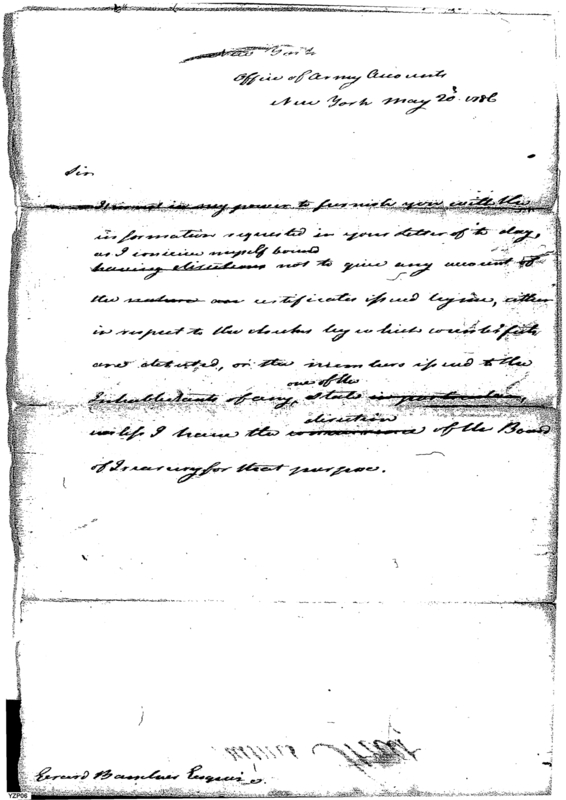 New York
Office of Army Accounts
New York May 20th 1786
Sir
It is not in my power to furnish you with the
information requested in your Letter of to day,
as I conceive myself bound
having directions not to give any account of
the nature certificates issued by me, either
in respect to the checks by which counterfeits
are detected, or the numbers issued to the
one of the
Inhabitants of any, State in particular,
direction
unless I have the of the Board
of Treasury for that purpose.
Gerard Bancker Esquire.
YZP06